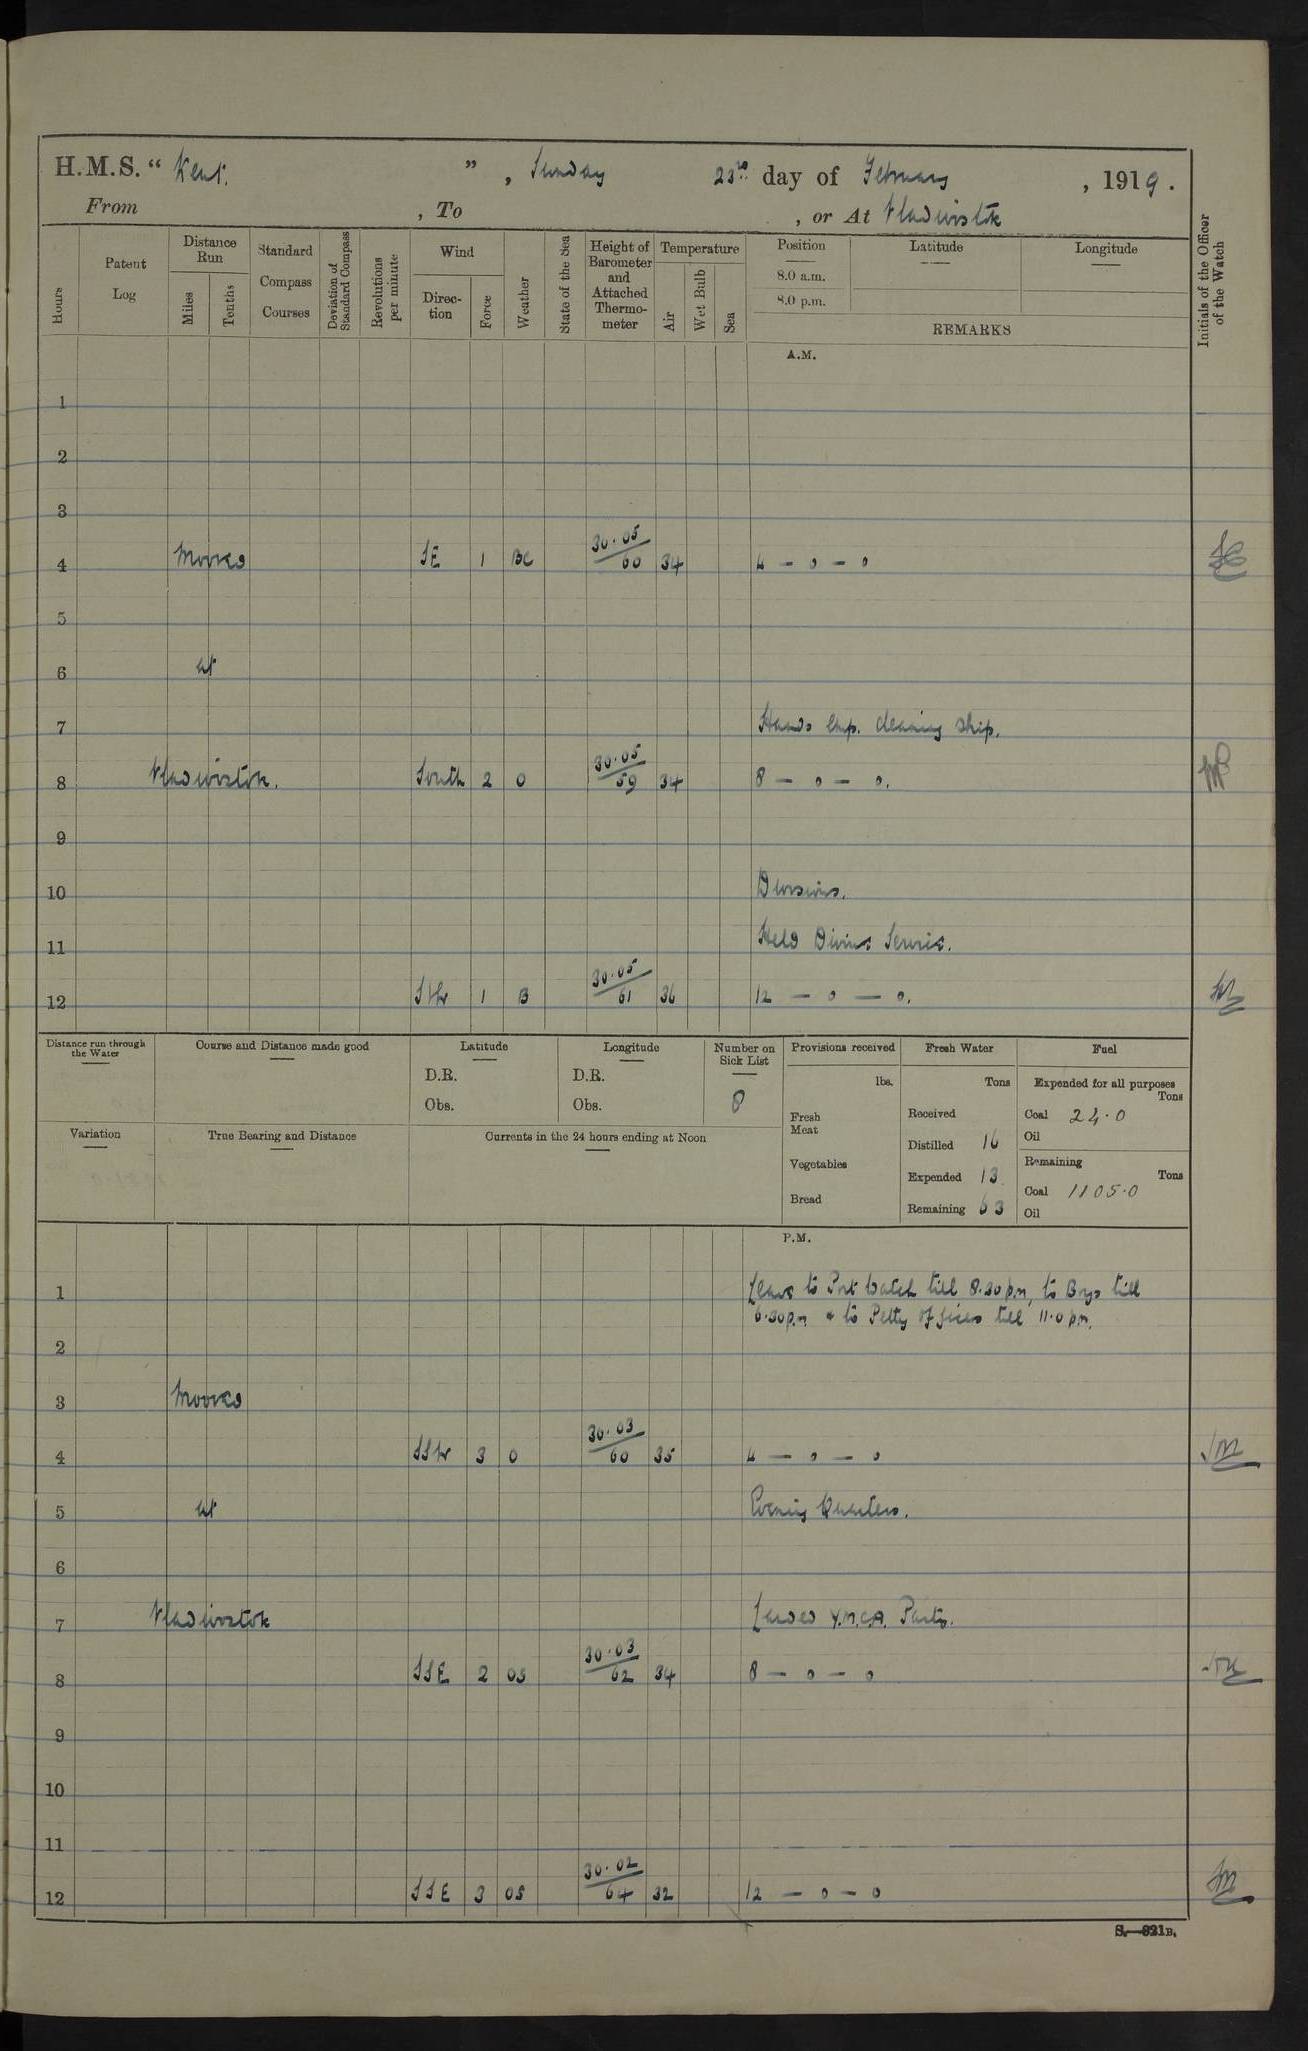 H.M.S. "Kent.", Sunday 23rd day of February, 1919.
From , To , or At Vladivostok
Hours
Patent Log
Distance Run
Miles
Tenths
Standard Compass Courses
Deviation of Standard Compass
Revolutions per minute
Wind
Direction
Force
Weather
State of the Sea
Height of Barometer and Attached Thermometer
Temperature
Air
Wet Bulb
Sea
Position
8.0 a.m.
8.0 p.m.
Latitude
Longitude
REMARKS
Initials of the Officer of the Watch
A.M.
1
2
3
4 Moored SE 1 BC 30.05/60 34 4 – 0 – 0
5
6 at
7 Hands emp. cleaning ship.
8 Vladivostok. South 2 O 30.05/59 34 8 – 0 – 0.
9
10 Divisions.
11 Held Divine Service.
12 Sth 1 B 30.05/61 36 12 – 0 – 0.
Distance run through the Water
Course and Distance made good
Latitude
D.R.
Obs.
Longitude
D.R.
Obs.
Number on Sick List
8
Provisions received
lbs.
Fresh Meat
Vegetables
Bread
Fresh Water
Tons
Received
Distilled 16
Expended 13
Remaining 63
Fuel
Expended for all purposes
Tons
Coal 24.0
Oil
Remaining
Tons
Coal 1105.0
Oil
Variation
True Bearing and Distance
Currents in the 24 hours ending at Noon
P.M.
1 Leave to Port Watch till 8.30 p.m, to Boys till
6.30 p.m & to Petty Officers till 11.0 p.m.
2
3 Moored
4 SSW 3 O 30.03/60 35 4 – 0 – 0
5 at Evening Quarters.
6
7 Vladivostok Landed Y.M.C.A. Party.
8 SSE 2 OS 30.03/62 34 8 – 0 – 0
9
10
11
12 SSE 3 OS 30.02/64 32 12 – 0 – 0
S.—321B.